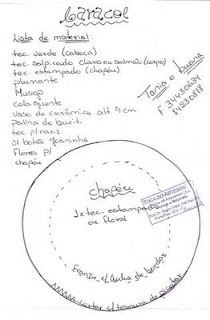 Caracol
Lista de material:
tec. verde (cabeça)
tec. salpicado claro ou salmão (corpo)
tec. estampado (chapéu)
plumante
Musgo
cola quente
vaso de cerâmica alt. 4cm
Palha de buriti
tec p/ nariz
01 botão
Flores p/
chapéu
Tania e
F. 34430634
chapéu
1x tec. estampado
ou floral
Franzir c/ linha de bordar
cortar c/ tesoura de picotar